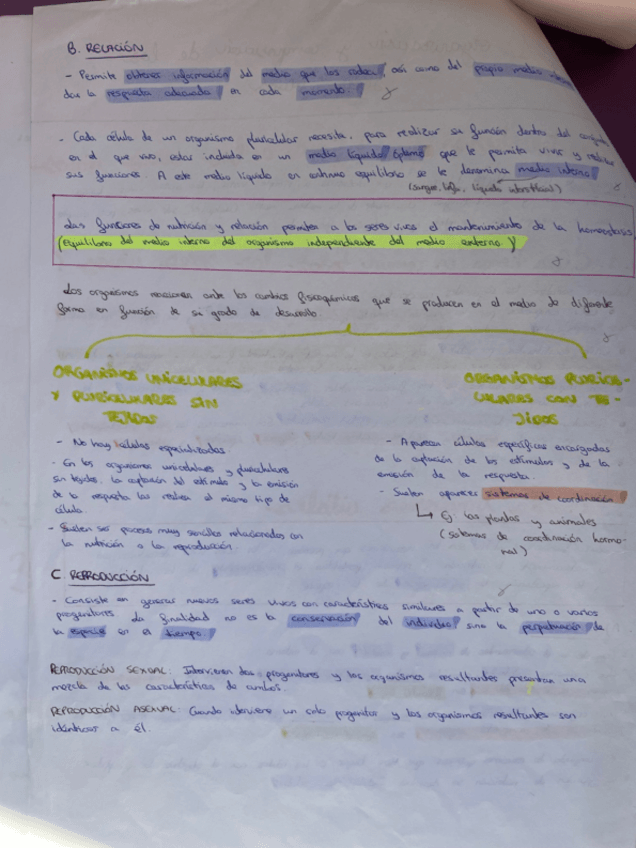 B. RELACIÓN
- Permite obtener información del medio que los rodea, así como del propio medio interno
dar la respuesta adecuada en cada momento.
- Cada célula de un organismo pluricelular necesita, para realizar su función dentro del conjunto
en el que vive, estar incluida en un medio líquido óptimo que le permita vivir y realizar
sus funciones. A este medio líquido en continuo equilibrio se le denomina medio interno
(sangre, linfa, líquido intersticial)
Las funciones de nutrición y relación permiten a los seres vivos el mantenimiento de la homeostasis
(equilibrio del medio interno del organismo independiente del medio externo)
Los organismos reaccionan ante los cambios fisicoquímicos que se producen en el medio de diferente
forma en función de su grado de desarrollo
ORGANISMOS UNICELULARES
Y PLURICELULARES SIN
TEJIDOS
- No hay células especializadas
- En los organismos unicelulares y pluricelulares
sin tejidos, la captación del estímulo y la emisión
de la respuesta las realiza el mismo tipo de
célula.
- Suelen ser procesos muy sencillos relacionados con
la nutrición o la reproducción.
ORGANISMOS PLURICE-
LULARES CON TE-
JIDOS
- Aparecen células específicas encargadas
de la captación de los estímulos y de la
emisión de la respuesta.
- Suelen aparecer sistemas de coordinación
↳ Ej las plantas y animales
(sistemas de coordinación hormo-
nal)
C REPRODUCCIÓN
- Consiste en generar nuevos seres vivos con características similares a partir de uno o varios
progenitores. La finalidad no es la conservación del individuo, sino la perpetuación de
la especie en el tiempo.
REPRODUCCIÓN SEXUAL: Intervienen dos progenitores y los organismos resultantes presentan una
mezcla de las características de ambos.
REPRODUCCIÓN ASEXUAL: Cuando interviene un solo progenitor y los organismos resultantes son
idénticos a él.